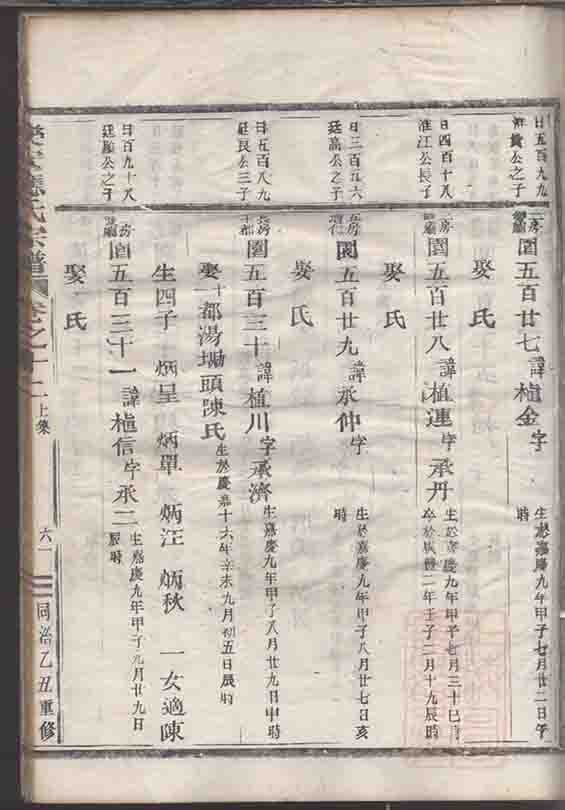 日五百九九
公之子
房
圍五百廿七 諱植金 字
生於嘉慶九年甲子七月廿二日午
時
娶 氏
日四百十八
淮江公長子
房
圍五百廿八 諱植連 字承丹
生於嘉慶九年甲子七月三十巳時
卒於咸豐二年壬子二月十九辰時
娶 氏
日三百五六
廷高公之子
房
圍五百廿九 諱承仲 字
生於嘉慶九年甲子八月廿七日亥
時
娶 氏
日五百八九
廷良公三子
圍五百三十 諱植川 字承濟
生嘉慶九年甲子八月廿九日申時
娶十一都湯坳頭陳氏
生於慶嘉十六年辛未九月初五日辰時
生四子 炳呈 炳單 炳汪 炳秋 一女適陳
日百九十八
廷顯公之子
房
圍五百三十一 諱植信 字承二
生嘉慶九年甲子九月廿九日
辰時
娶 氏
氏宗譜 卷之十二 上集 六一 同治乙丑重修